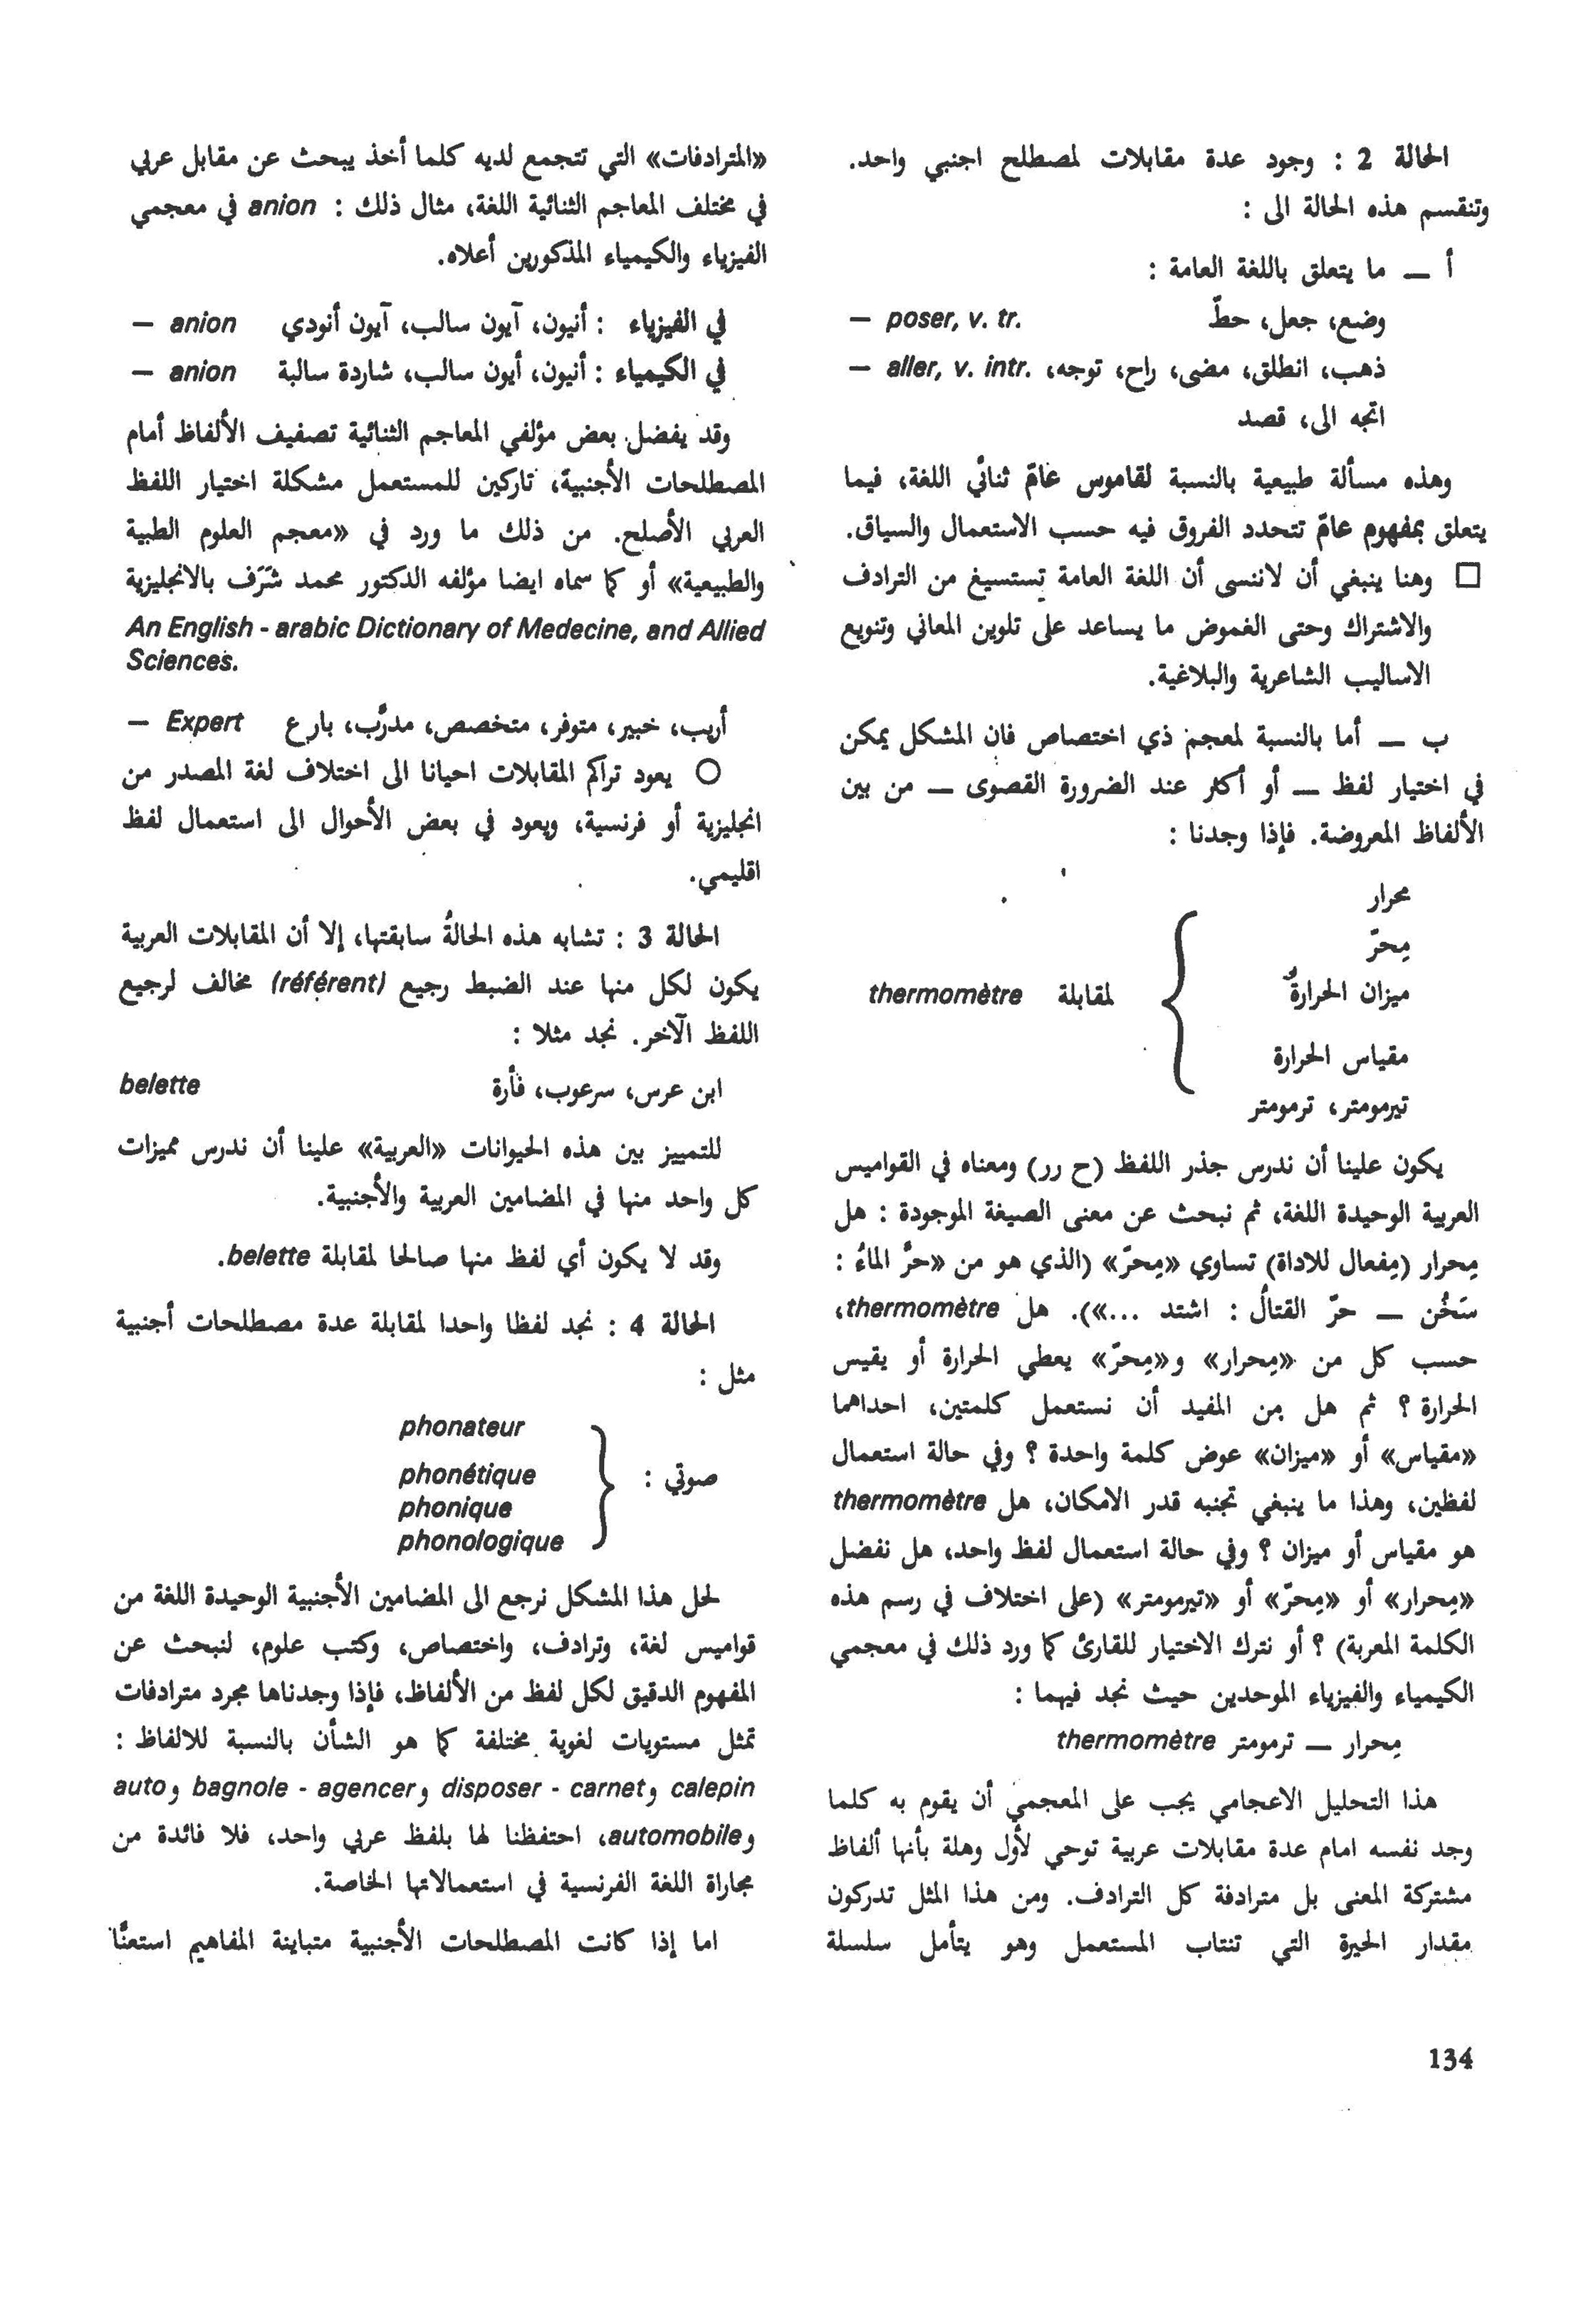 الحالة 2 : وجود عدة مقابلات لمصطلح اجنبي واحد.
وتنقسم هذه الحالة الى :
أ ــ ما يتعلق باللغة العامة :
وضع، جعل، حطّ poser, v. tr. –
ذهب، انطلق، مضى، راح، توجه، aller, v. intr. –
اتجه الى، قصد
وهذه مسألة طبيعية بالنسبة لقاموس عامّ ثنائي اللغة، فيما
يتعلق بمفهوم عامّ تتحدد الفروق فيه حسب الاستعمال والسياق.
□ وهنا ينبغي أن لاننسى أن اللغة العامة تستسيغ من الترادف
والاشتراك وحتى الغموض ما يساعد على تلوين المعاني وتنويع
الاساليب الشاعرية والبلاغية.
ب ــ أما بالنسبة لمعجم ذي اختصاص فان المشكل يمكن
في اختيار لفظ ــ أو أكثر عند الضرورة القصوى ــ من بين
الألفاظ المعروضة. فإذا وجدنا :
محرار
مِحرّ
ميزان الحرارة
لمقابلة thermomètre
مقياس الحرارة
تيرمومتر، ترمومتر
يكون علينا أن ندرس جذر اللفظ (ح رر) ومعناه في القواميس
العربية الوحيدة اللغة، ثم نبحث عن معنى الصيغة الموجودة : هل
مِحرار (مِفعال للاداة) تساوي «مِحرّ» (الذي هو من «حرَّ الماءُ :
سَخُن ــ حرّ القتالُ : اشتد ...»). هل thermomètre،
حسب كل من «مِحرار» و«مِحرّ» يعطي الحرارة أو يقيس
الحرارة ؟ ثم هل من المفيد أن نستعمل كلمتين، احداهما
«مقياس» أو «ميزان» عوض كلمة واحدة ؟ وفي حالة استعمال
لفظين، وهذا ما ينبغي تجنبه قدر الامكان، هل thermomètre
هو مقياس أو ميزان ؟ وفي حالة استعمال لفظ واحد، هل نفضل
«مِحرار» أو «مِحرّ» أو «تيرمومتر» (على اختلاف في رسم هذه
الكلمة المعربة) ؟ أو نترك الاختيار للقارئ كما ورد ذلك في معجمي
الكيمياء والفيزياء الموحدين حيث نجد فيهما :
مِحرار ــ ترمومتر thermomètre
هذا التحليل الاعجامي يجب على المعجمي أن يقوم به كلما
وجد نفسه امام عدة مقابلات عربية توحي لأول وهلة بأنها ألفاظ
مشتركة المعنى بل مترادفة كل الترادف. ومن هذا المثل تدركون
مقدار الحيرة التي تنتاب المستعمل وهو يتأمل سلسلة
«المترادفات» التي تتجمع لديه كلما أخذ يبحث عن مقابل عربي
في مختلف المعاجم الثنائية اللغة، مثال ذلك : anion في معجمي
الفيزياء والكيمياء المذكورين أعلاه.
في الفيزياء : أنيون، آيون سالب، آيون أنودي anion –
في الكيمياء : أنيون، أيون سالب، شاردة سالبة anion –
وقد يفضل بعض مؤلفي المعاجم الثنائية تصفيف الألفاظ أمام
المصطلحات الأجنبية، تاركين للمستعمل مشكلة اختيار اللفظ
العربي الأصلح. من ذلك ما ورد في «معجم العلوم الطبية
والطبيعية» أو كما سماه ايضا مؤلفه الدكتور محمد شَرَف بالانجليزية
An English - arabic Dictionary of Medecine, and Allied
Sciences.
أريب، خبير، متوفر، متخصص، مدرَّب، بارع Expert –
○ يعود تراكم المقابلات احيانا الى اختلاف لغة المصدر من
انجليزية أو فرنسية، ويعود في بعض الأحوال الى استعمال لفظ
اقليمي.
الحالة 3 : تشابه هذه الحالةُ سابقتها، إلا أن المقابلات العربية
يكون لكل منها عند الضبط رجيع (référent) مخالف لرجيع
اللفظ الآخر. نجد مثلا :
ابن عرس، سرعوب، فأرة belette
للتمييز بين هذه الحيوانات «العربية» علينا أن ندرس مميزات
كل واحد منها في المضامين العربية والأجنبية.
وقد لا يكون أي لفظ منها صالحا لمقابلة belette.
الحالة 4 : نجد لفظا واحدا لمقابلة عدة مصطلحات أجنبية
مثل :
phonateur
صوتي : phonétique
phonique
phonologique
لحل هذا المشكل نرجع الى المضامين الأجنبية الوحيدة اللغة من
قواميس لغة، وترادف، واختصاص، وكتب علوم، لنبحث عن
المفهوم الدقيق لكل لفظ من الألفاظ، فإذا وجدناها مجرد مترادفات
تمثل مستويات لغوية مختلفة كما هو الشأن بالنسبة للالفاظ :
calepin وcarnet - disposer وagencer - bagnole وauto
وautomobile، احتفظنا لها بلفظ عربي واحد، فلا فائدة من
مجاراة اللغة الفرنسية في استعمالاتها الخاصة.
اما إذا كانت المصطلحات الأجنبية متباينة المفاهيم استعنَّا
134